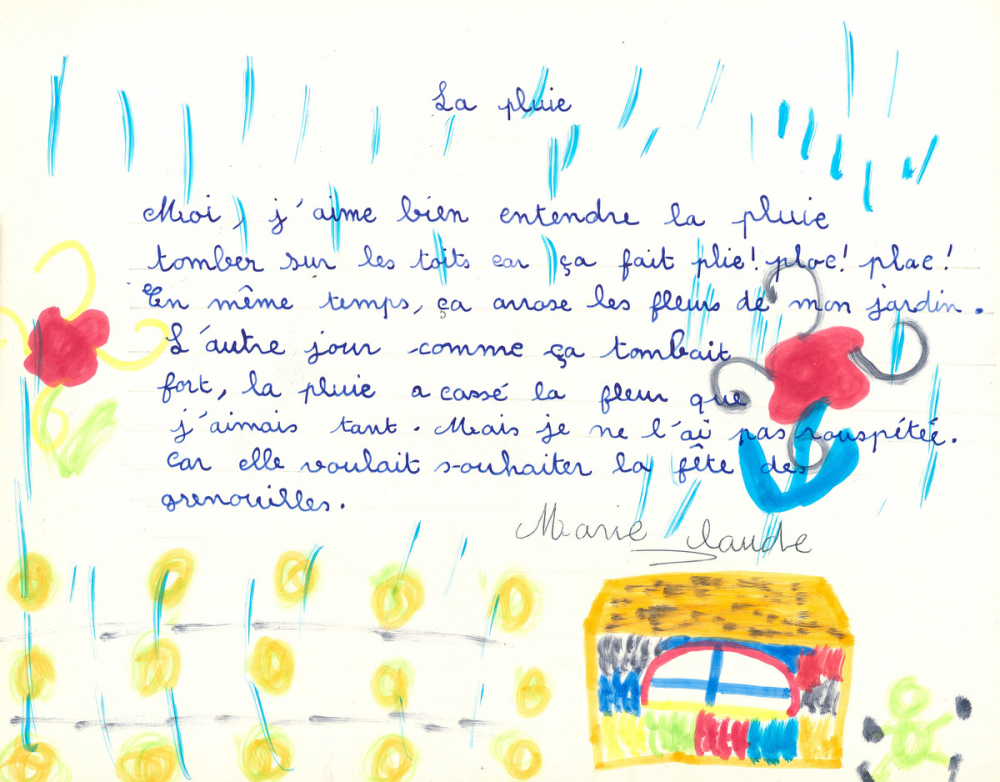 La pluie
Moi, j'aime bien entendre la pluie
tomber sur les toits car ça fait plie! ploc! plac!
En même temps, ça arrose les fleurs de mon jardin.
L'autre jour comme ça tombait
fort, la pluie a cassé la fleur que
j'aimais tant. Mais je ne l'ai pas rouspétée.
Car elle voulait souhaiter la fête des
grenouilles.
Marie Claude